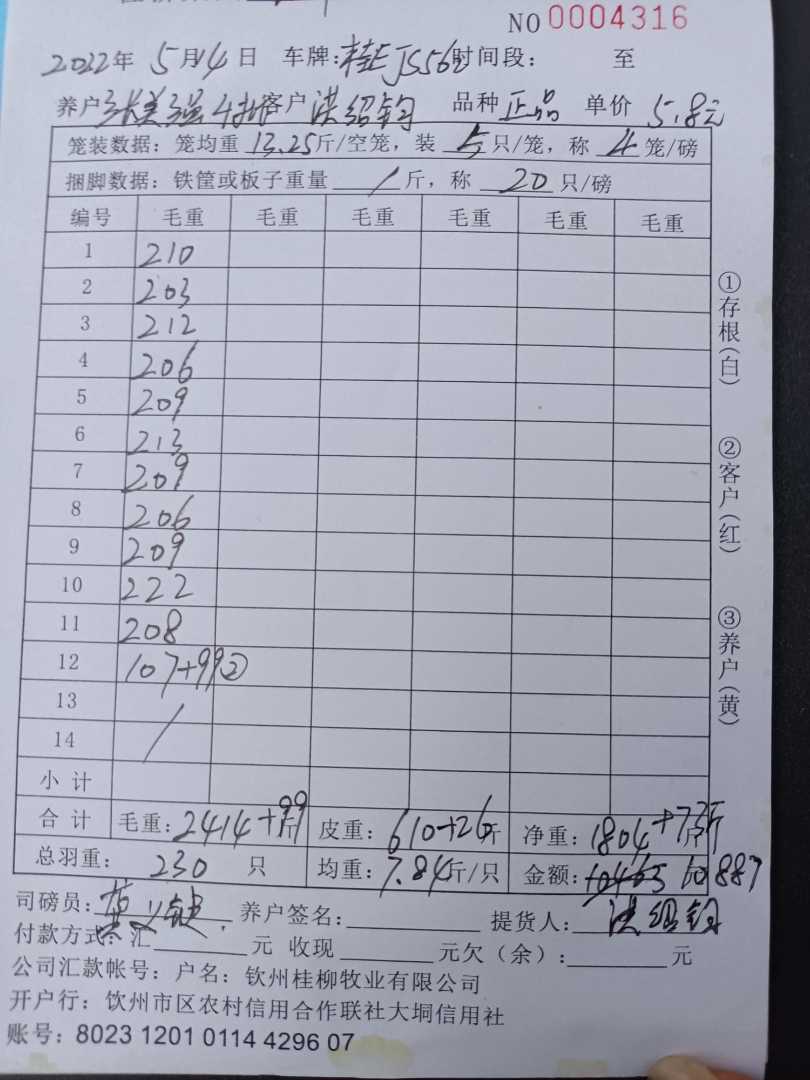 NO 0004316
2022年 5月14日 车牌:桂EJS56 时间段: 至
养户 张美强 客户 洪绍钧 品种 正品 单价 5.8元
笼装数据: 笼均重 13.25斤/空笼, 装 5只/笼, 称 4笼/磅
捆脚数据: 铁筐或板子重量 / 斤, 称 20 只/磅
编号 毛重 毛重 毛重 毛重 毛重 毛重
1 210
2 203
3 212
4 206
5 209
6 213
7 209
8 206
9 209
10 222
11 208
12 107+99②
13
14 /
小计
合计 毛重: 2414+99斤 皮重: 610+26斤 净重: 1804+73斤
总羽重: 230 只 均重: 7.84斤/只 金额: 10465 10887
司磅员: 养户签名: 提货人: 洪绍钧
付款方式: 汇 元 收现 元欠(余): 元
公司汇款帐号: 户名: 钦州桂柳牧业有限公司
开户行: 饮州市区农村信用合作联社大垌信用社
账号: 8023 1201 0114 4296 07
①存根(白)
②客户(红)
③养户(黄)